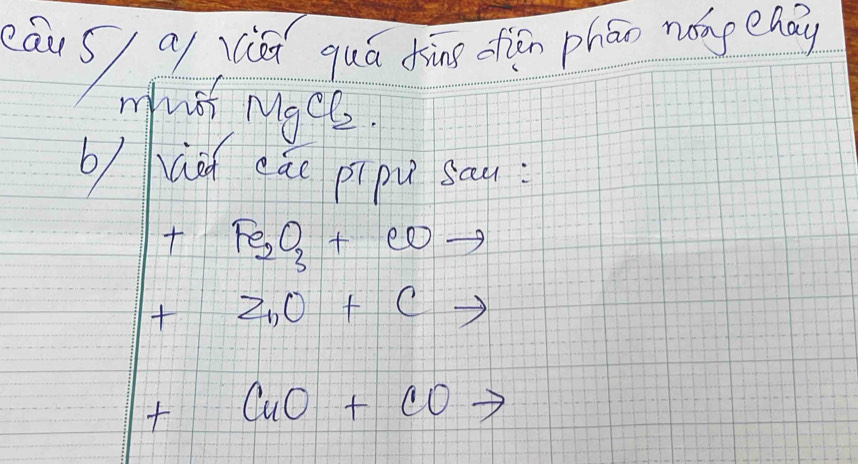 câu 5/ a/ viết quá trình điện phân nóng chảy
muối MgCl₂.
b/ viết các ptpư sau:
+ Fe₂O₃ + CO →
+ ZnO + C →
+ CuO + CO →